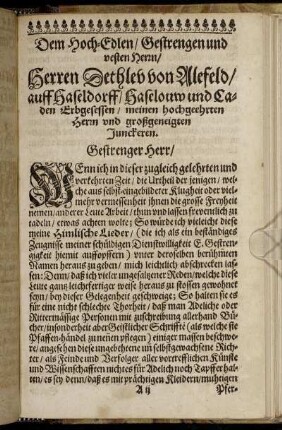 Dem Hoch-Edlen/ Gestrengen und
vesten Herrn/
Herren Dethleb von Alefeld/
auff Haseldorff/ Haselouw und Ca-
den Erbgesessen/ meinen hochgeehrten
Herrn und großgeneigten
Junckeren.
Gestrenger Herr/
WEnn ich in dieser zugleich gelehrten und
verkehrten Zeit/ die Urtheil der jenigen/ wel-
che aus selbst-eingebildter Klugheit oder viel-
mehr vermessenheit ihnen die grosse Freyheit
nemen/ anderer Leute Arbeit/ thun und lassen freventlich zu
tadeln/ etwas achten wolte; So würde ich vieleicht diese
meine Himlische Lieder/ (die ich als ein beständiges
Zeugnisse meiner schüldigen Dienstwilligkeit E. Gestren-
gigkeit hiemit auffopffere) unter deroselben berühmten
Namen heraus zu geben/ mich leichtlich abschrecken las-
sen: Denn/ daß ich vieler ungesaltzener Reden/ welche diese
Leute gantz leichtfertiger weise heraus zu stossen gewohnet
seyn/ bey dieser Gelegenheit geschweige; So halten sie es
für eine nicht schlechte Thorheit/ daß man Adeliche oder
Rittermässige Personen mit zuschreibung allerhand Bü-
cher/ insonderheit aber Geistlicher Schriffte (als welche sie
Pfaffen-händel zu nenen pflegen) einiger massen beschwe-
re/ angesehen diese ungebehtene und selbstgewachsene Rich-
ter/ als Feinde und Verfolger aller vortrefflichen Künste
und Wissenschafften nichtes für Adelich noch Tapffer hal-
ten/ es sey denn/ daß es mit prächtigen Kleidern/ muhtigen
A ij Pfer-